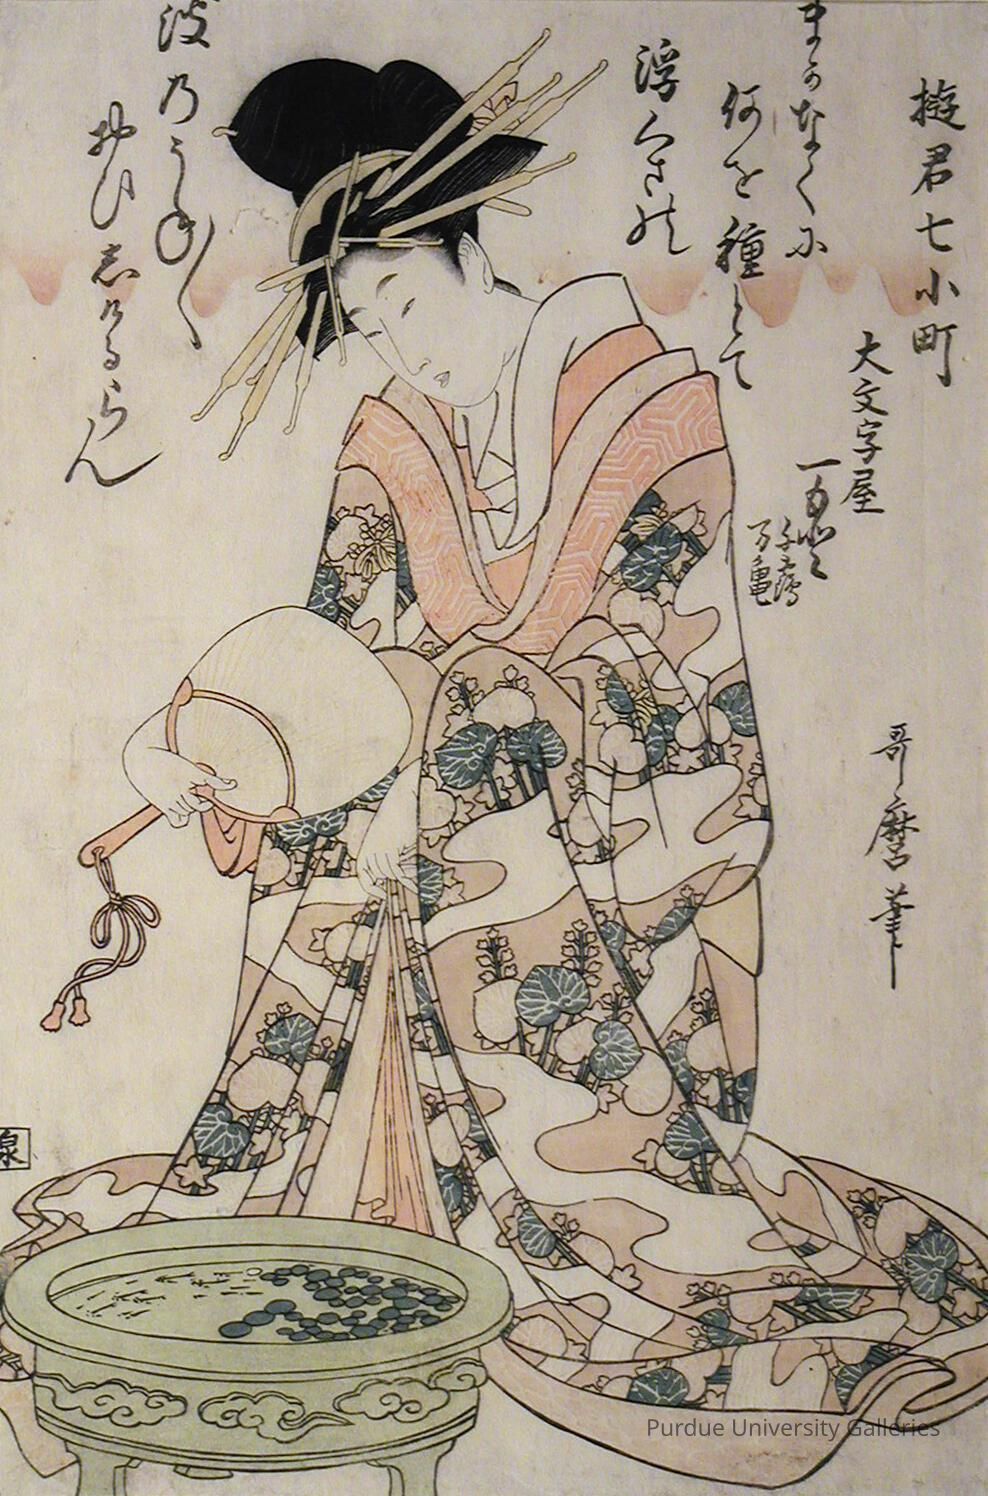 遊君七小町
大文字屋
一もと
千鳥
万亀
まかなくに
何を種とて
浮くさの
波のうね〳〵
おひしけるらん
哥麿筆
泉
Purdue University Galleries